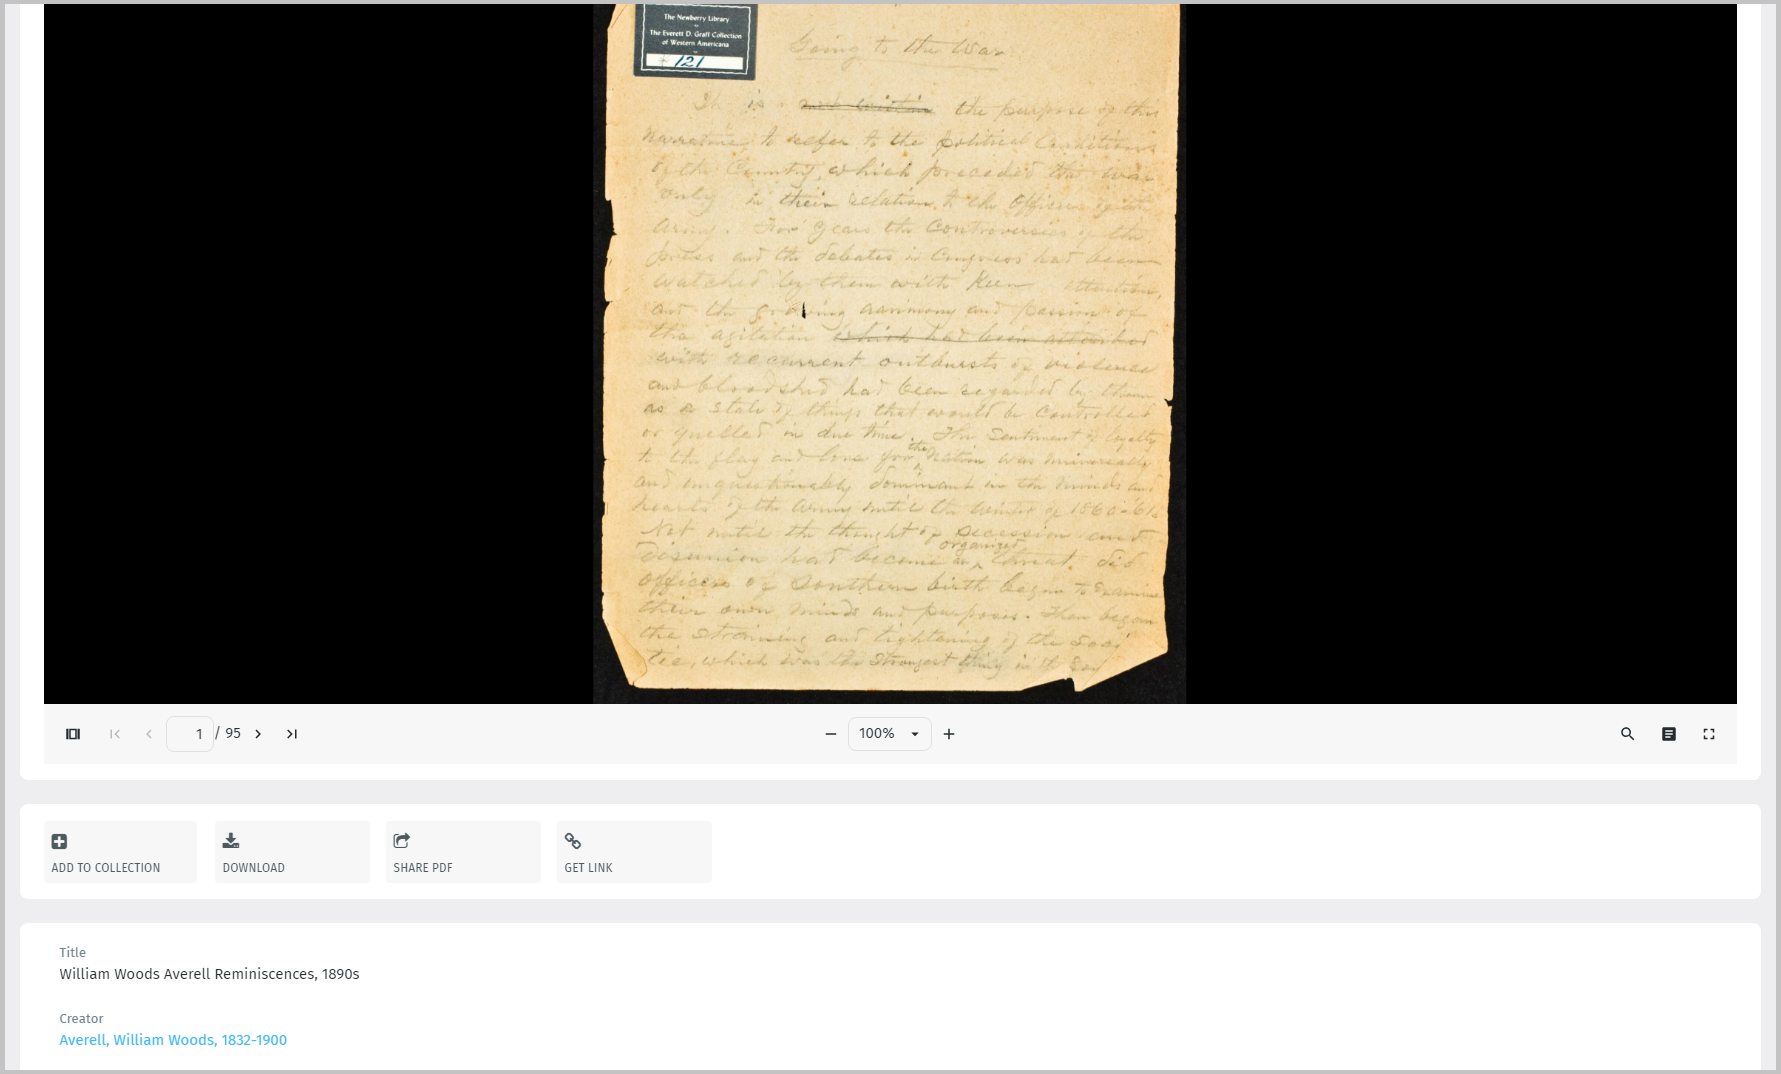 The Newberry Library
The Everett D. Graff Collection
of Western Americana
# 121
Going to the War
It is not within the purpose of this
narrative, to refer to the political Conditions
of the Country, which preceded the war
only in their relation to the Officers of the
Army. For years the Controversies of the
press and the debates in Congress had been
watched by them with Keen attention,
and the growing acrimony and passion of
the agitation which had been attended
with recurrent outbursts of violence
and bloodshed had been regarded by them
as a state of things that would be Controlled
or quelled in due time. The Sentiment of loyalty
to the flag and love for the Nation was universally
and unquestionably dominant in the minds and
hearts of the Army until the winter of 1860-61.
Not until the thought of secession and
disunion had become an organized threat, did
officers of Southern birth began to Examine
their own minds and purposes. Then began
the straining and tightening of the
tie, which was the Strongest thing in the
1 / 95
100%
ADD TO COLLECTION
DOWNLOAD
SHARE PDF
GET LINK
Title
William Woods Averell Reminiscences, 1890s
Creator
Averell, William Woods, 1832-1900